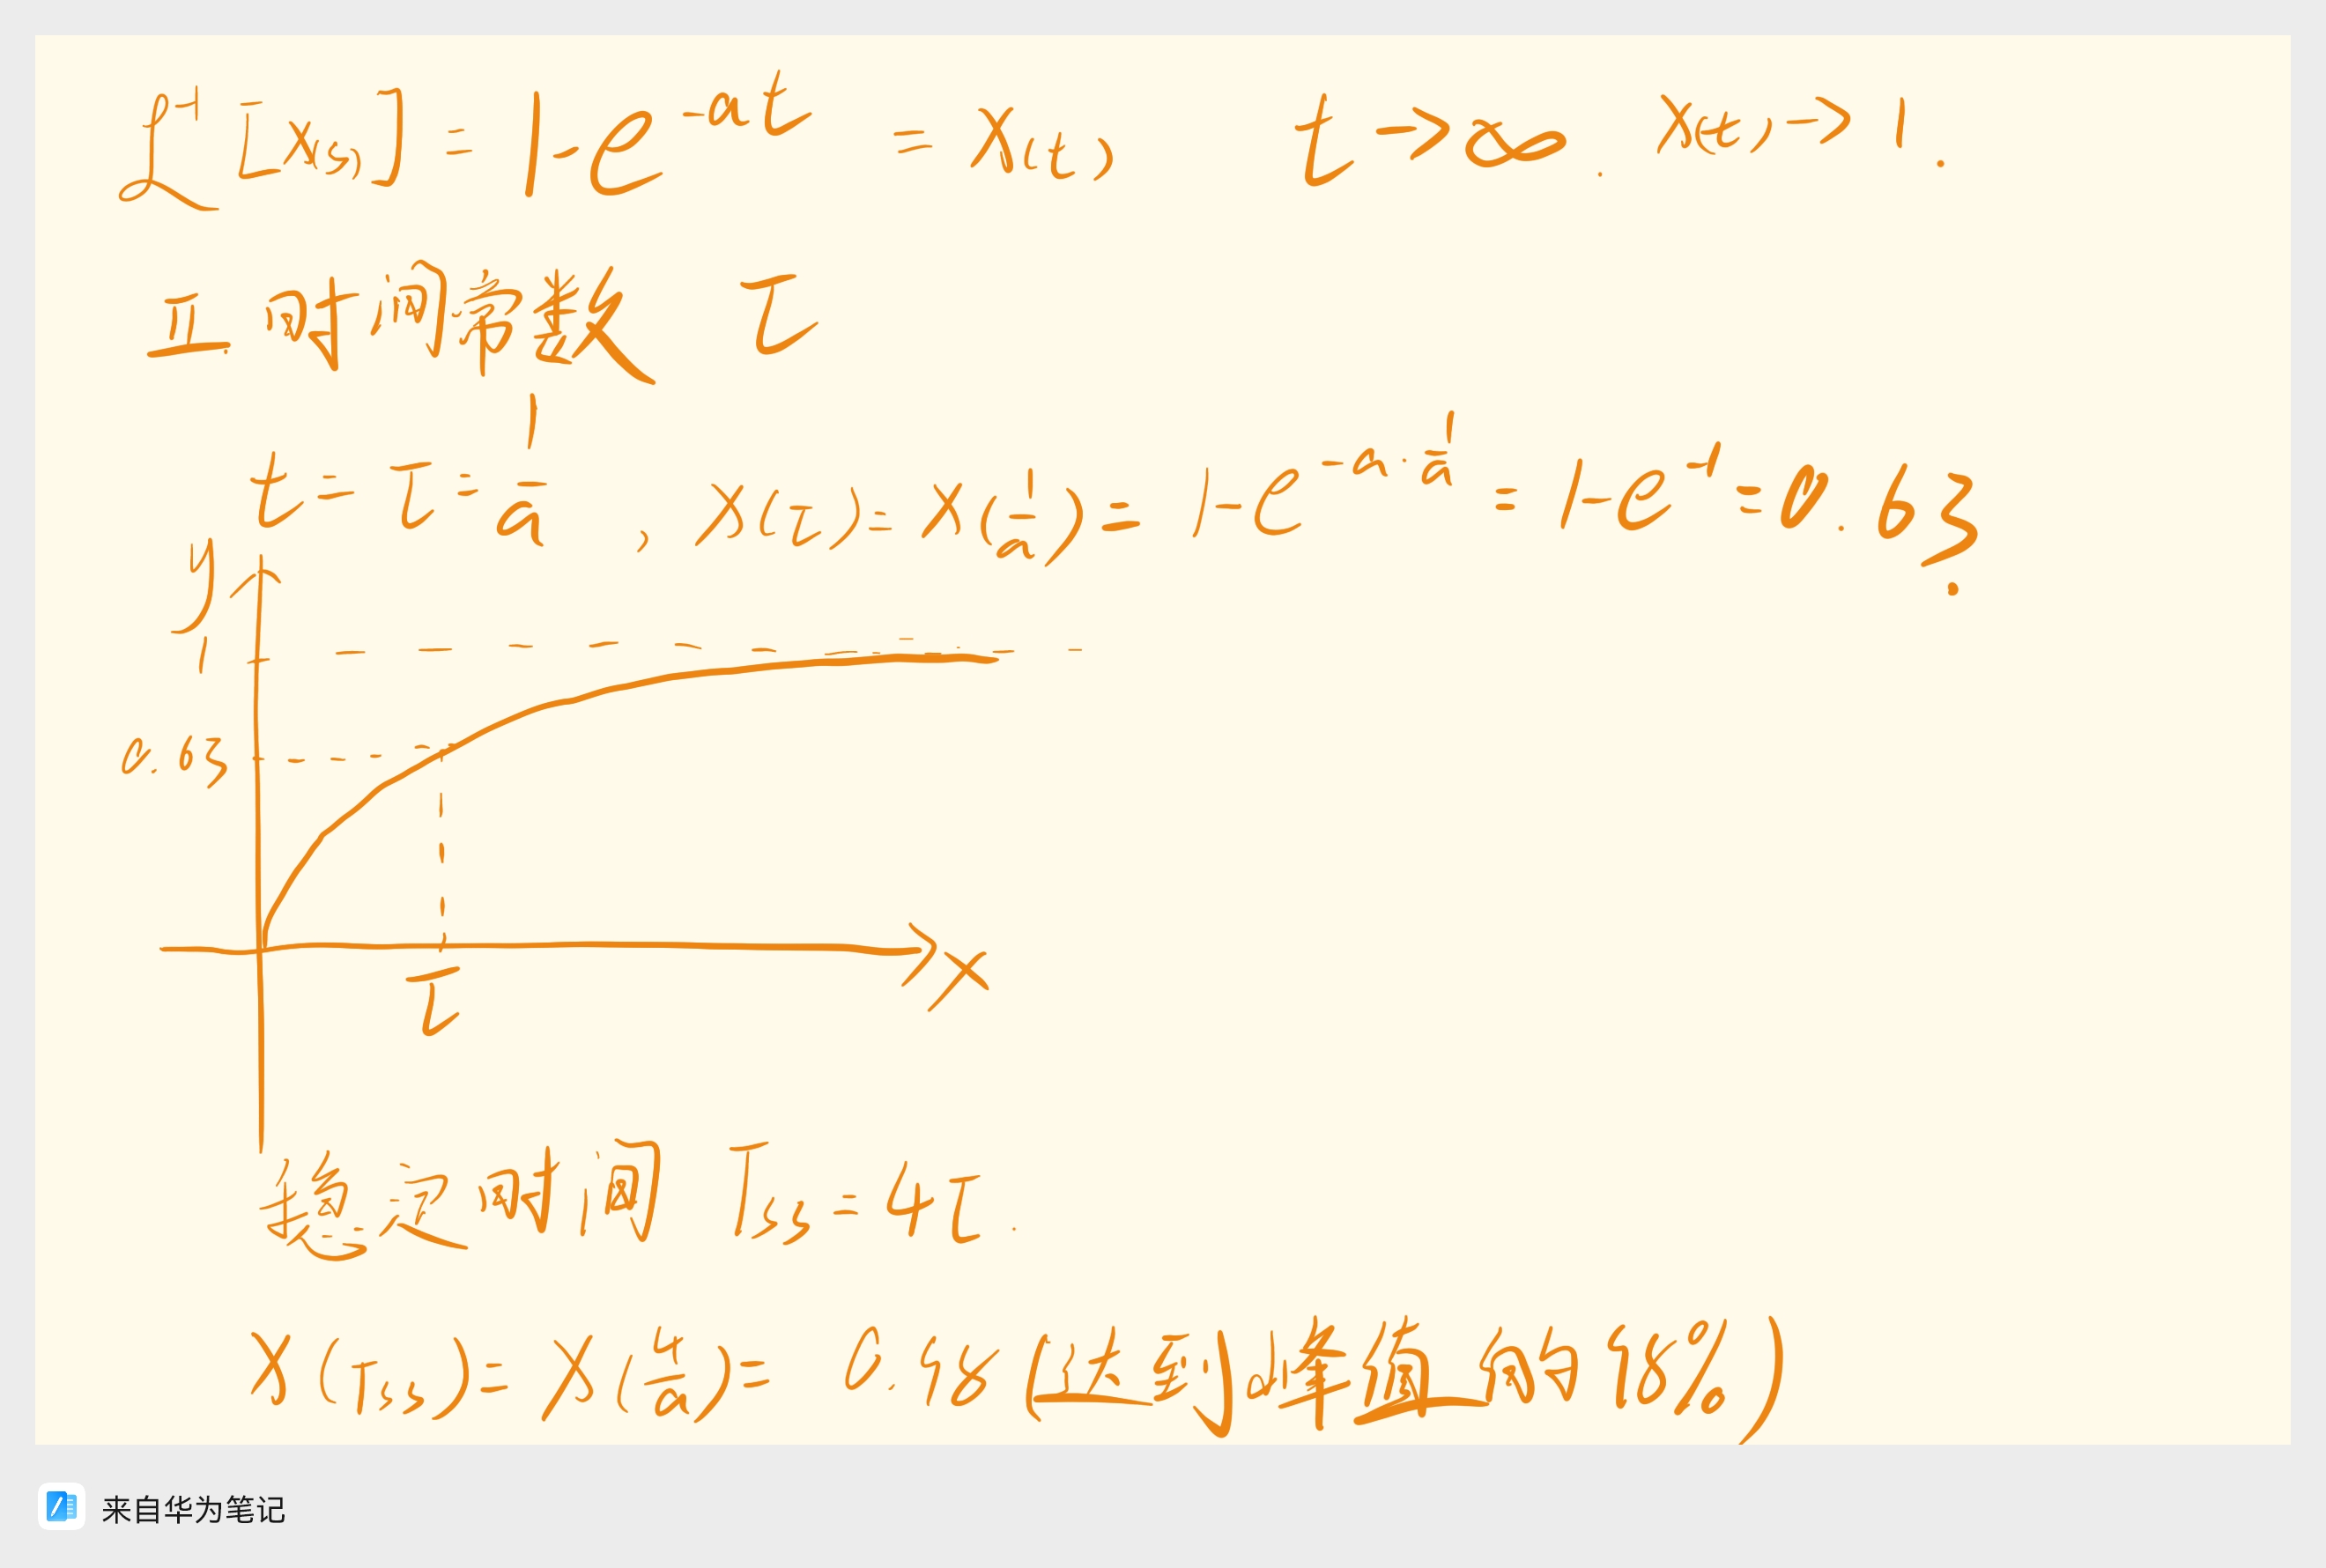 ℒ⁻¹[X(s)] = 1-e^{-at} = X(t) t→∞. X(t)→1.
II. 时间常数 τ
t = τ = 1/a , X(τ) = X(1/a) = 1-e^{-a·1/a} = 1-e^{-1} = 0.63
y
1
0.63
x
τ
稳定时间 Tss = 4τ.
X(Tss) = X(4/a) = 0.98 (达到峰值的98%)
来自华为笔记